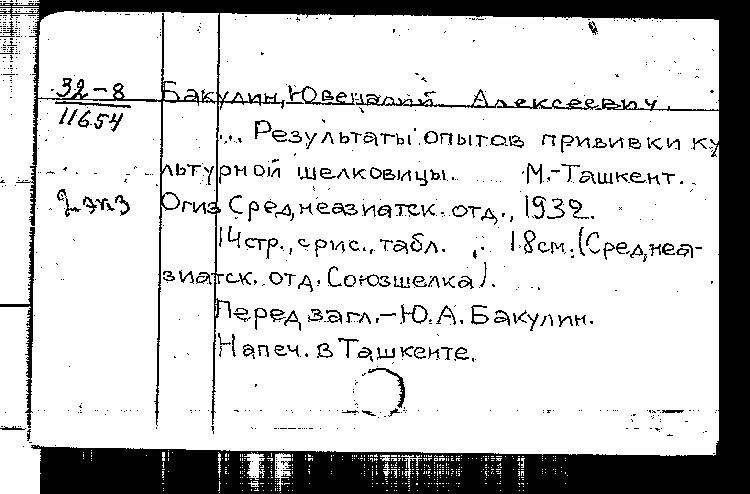 32-8 Бакулин, Ювеналий Алексеевич.
11654
... Результаты опытов прививки ку
льтурной шелковицы. М.-Ташкент.
2 экз Огиз Среднеазиатск. отд., 1932.
14 стр., с рис., табл. 18 см. (Среднеа-
зиатск. отд. Союзшелка).
Перед загл.-Ю.А. Бакулин.
Напеч. в Ташкенте.